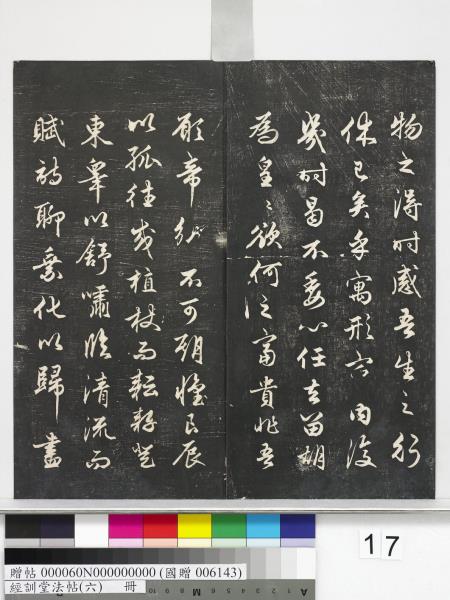 物之得時感吾生之行
休已矣乎寓形宇內復
幾時曷不委心任去留胡
為皇〻欲何之富貴非吾
願帝鄉不可期懷良辰
以孤往或植杖而耘耔登
東皋以舒嘯臨清流而
賦詩聊乘化以歸盡
17
贈帖 000060N000000000 (國贈 006143)
經訓堂法帖(六) 冊